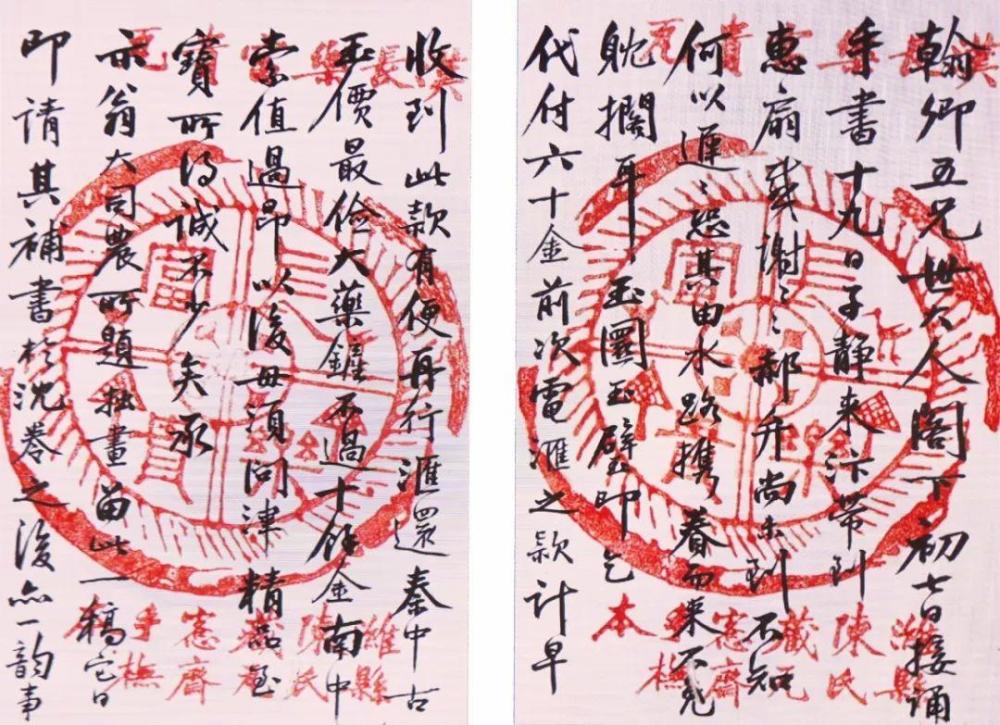 翰卿五兄世大人閣下初七日接誦
手書十九日子靜來汴帶到
惠扇感謝〻郝升尚未到不知
何以遲〻恐其由水路攜眷而來不免
耽擱耳玉圜玉璧印乞
代付六十金前次電滙之款計早
濰縣
陳氏
藏瓦
愙齋
手橅
本
收到此款有便再行滙還秦中古
玉價最儉大藥鏟不過十餘金南中
索值過昂以後毋須問津精品至
寶所得誠不少矣承
示翁大司農所題拙畫留此一稿它日
即請其補書於沈卷之後亦一韵事
濰縣
陳氏
藏瓦
愙齋
手橅